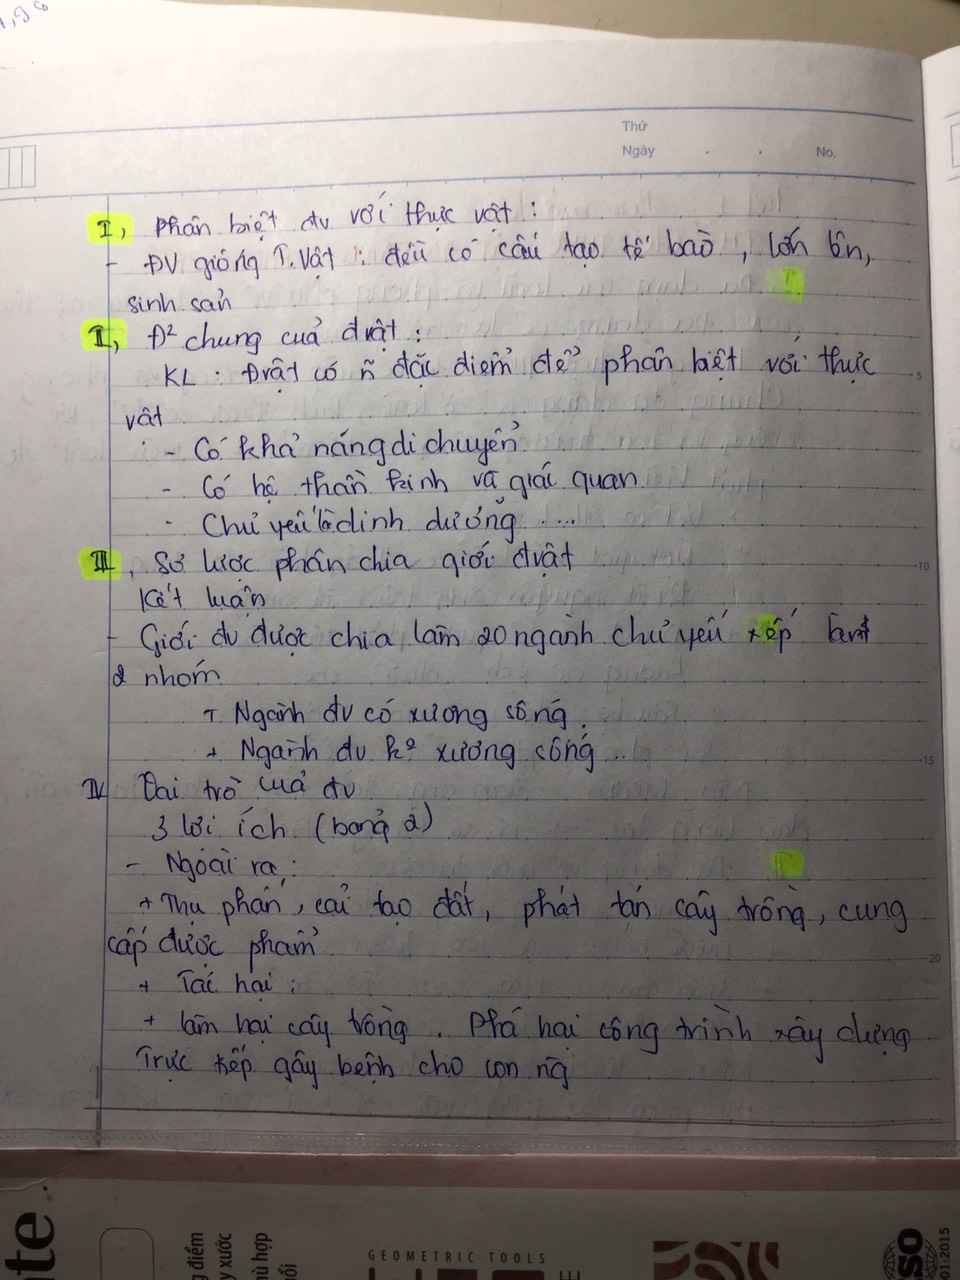 Thứ
Ngày . . No.
I, Phân biệt đv với thực vật :
- ĐV giống T.Vật : đều có cấu tạo tế bào, lớn lên,
sinh sản
I, Đ² chung của đvật :
KL : Đvật có ñ đặc điểm để phân biệt với thực
vật
- Có khả năng di chuyển
- Có hệ thần kinh và giác quan
- Chủ yếu là dinh dưỡng ....
III, Sơ lược phân chia giới đvật
Kết luận
- Giới đv được chia làm 20 ngành chủ yếu xếp
2 nhóm
+ Ngành đv có xương sống.
+ Ngành đv kº xương sống ..
IV Vai trò của đv
3 lợi ích (bảng 2)
- Ngoài ra :
+ Thụ phấn, cải tạo đất, phát tán cây trồng, cung
cấp dược phẩm
+ Tác hại :
+ làm hại cây trồng. Phá hại công trình xây dựng
Trực tiếp gây bệnh cho con ng
5
10
15
20
GEOMETRIC TOOLS
điểm
xước
hợp
ISO
:2015